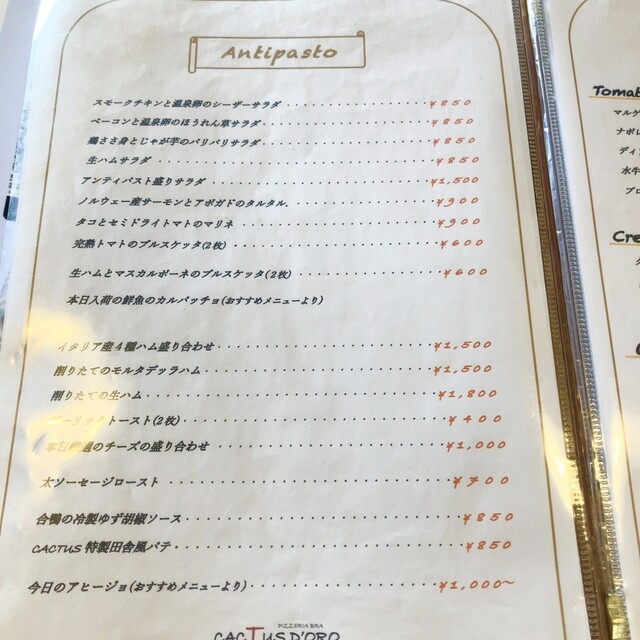 Antipasto
スモークチキンと温泉卵のシーザーサラダ ¥850
ベーコンと温泉卵のほうれん草サラダ ¥850
鶏ささ身とじゃが芋のパリパリサラダ ¥850
生ハムサラダ ¥850
アンティパスト盛りサラダ ¥1,500
ノルウェー産サーモンとアボガドのタルタル. ¥900
タコとセミドライトマトのマリネ ¥900
完熟トマトのブルスケッタ(2枚) ¥600
生ハムとマスカルポーネのブルスケッタ(2枚) ¥600
本日入荷の鮮魚のカルパッチョ(おすすめメニューより)
イタリア産4種ハム盛り合わせ ¥1,500
削りたてのモルタデッラハム ¥1,500
削りたての生ハム ¥1,800
トースト(2枚) ¥400
のチーズの盛り合わせ ¥1,000
太ソーセージロースト ¥700
合鴨の冷製ゆず胡椒ソース ¥850
CACTUS 特製田舎風パテ ¥850
今日のアヒージョ(おすすめメニューより) ¥1,000～
PIZZERIA BRA
CACTUS D'ORO
マルゲ
ナポ
ディ
水牛